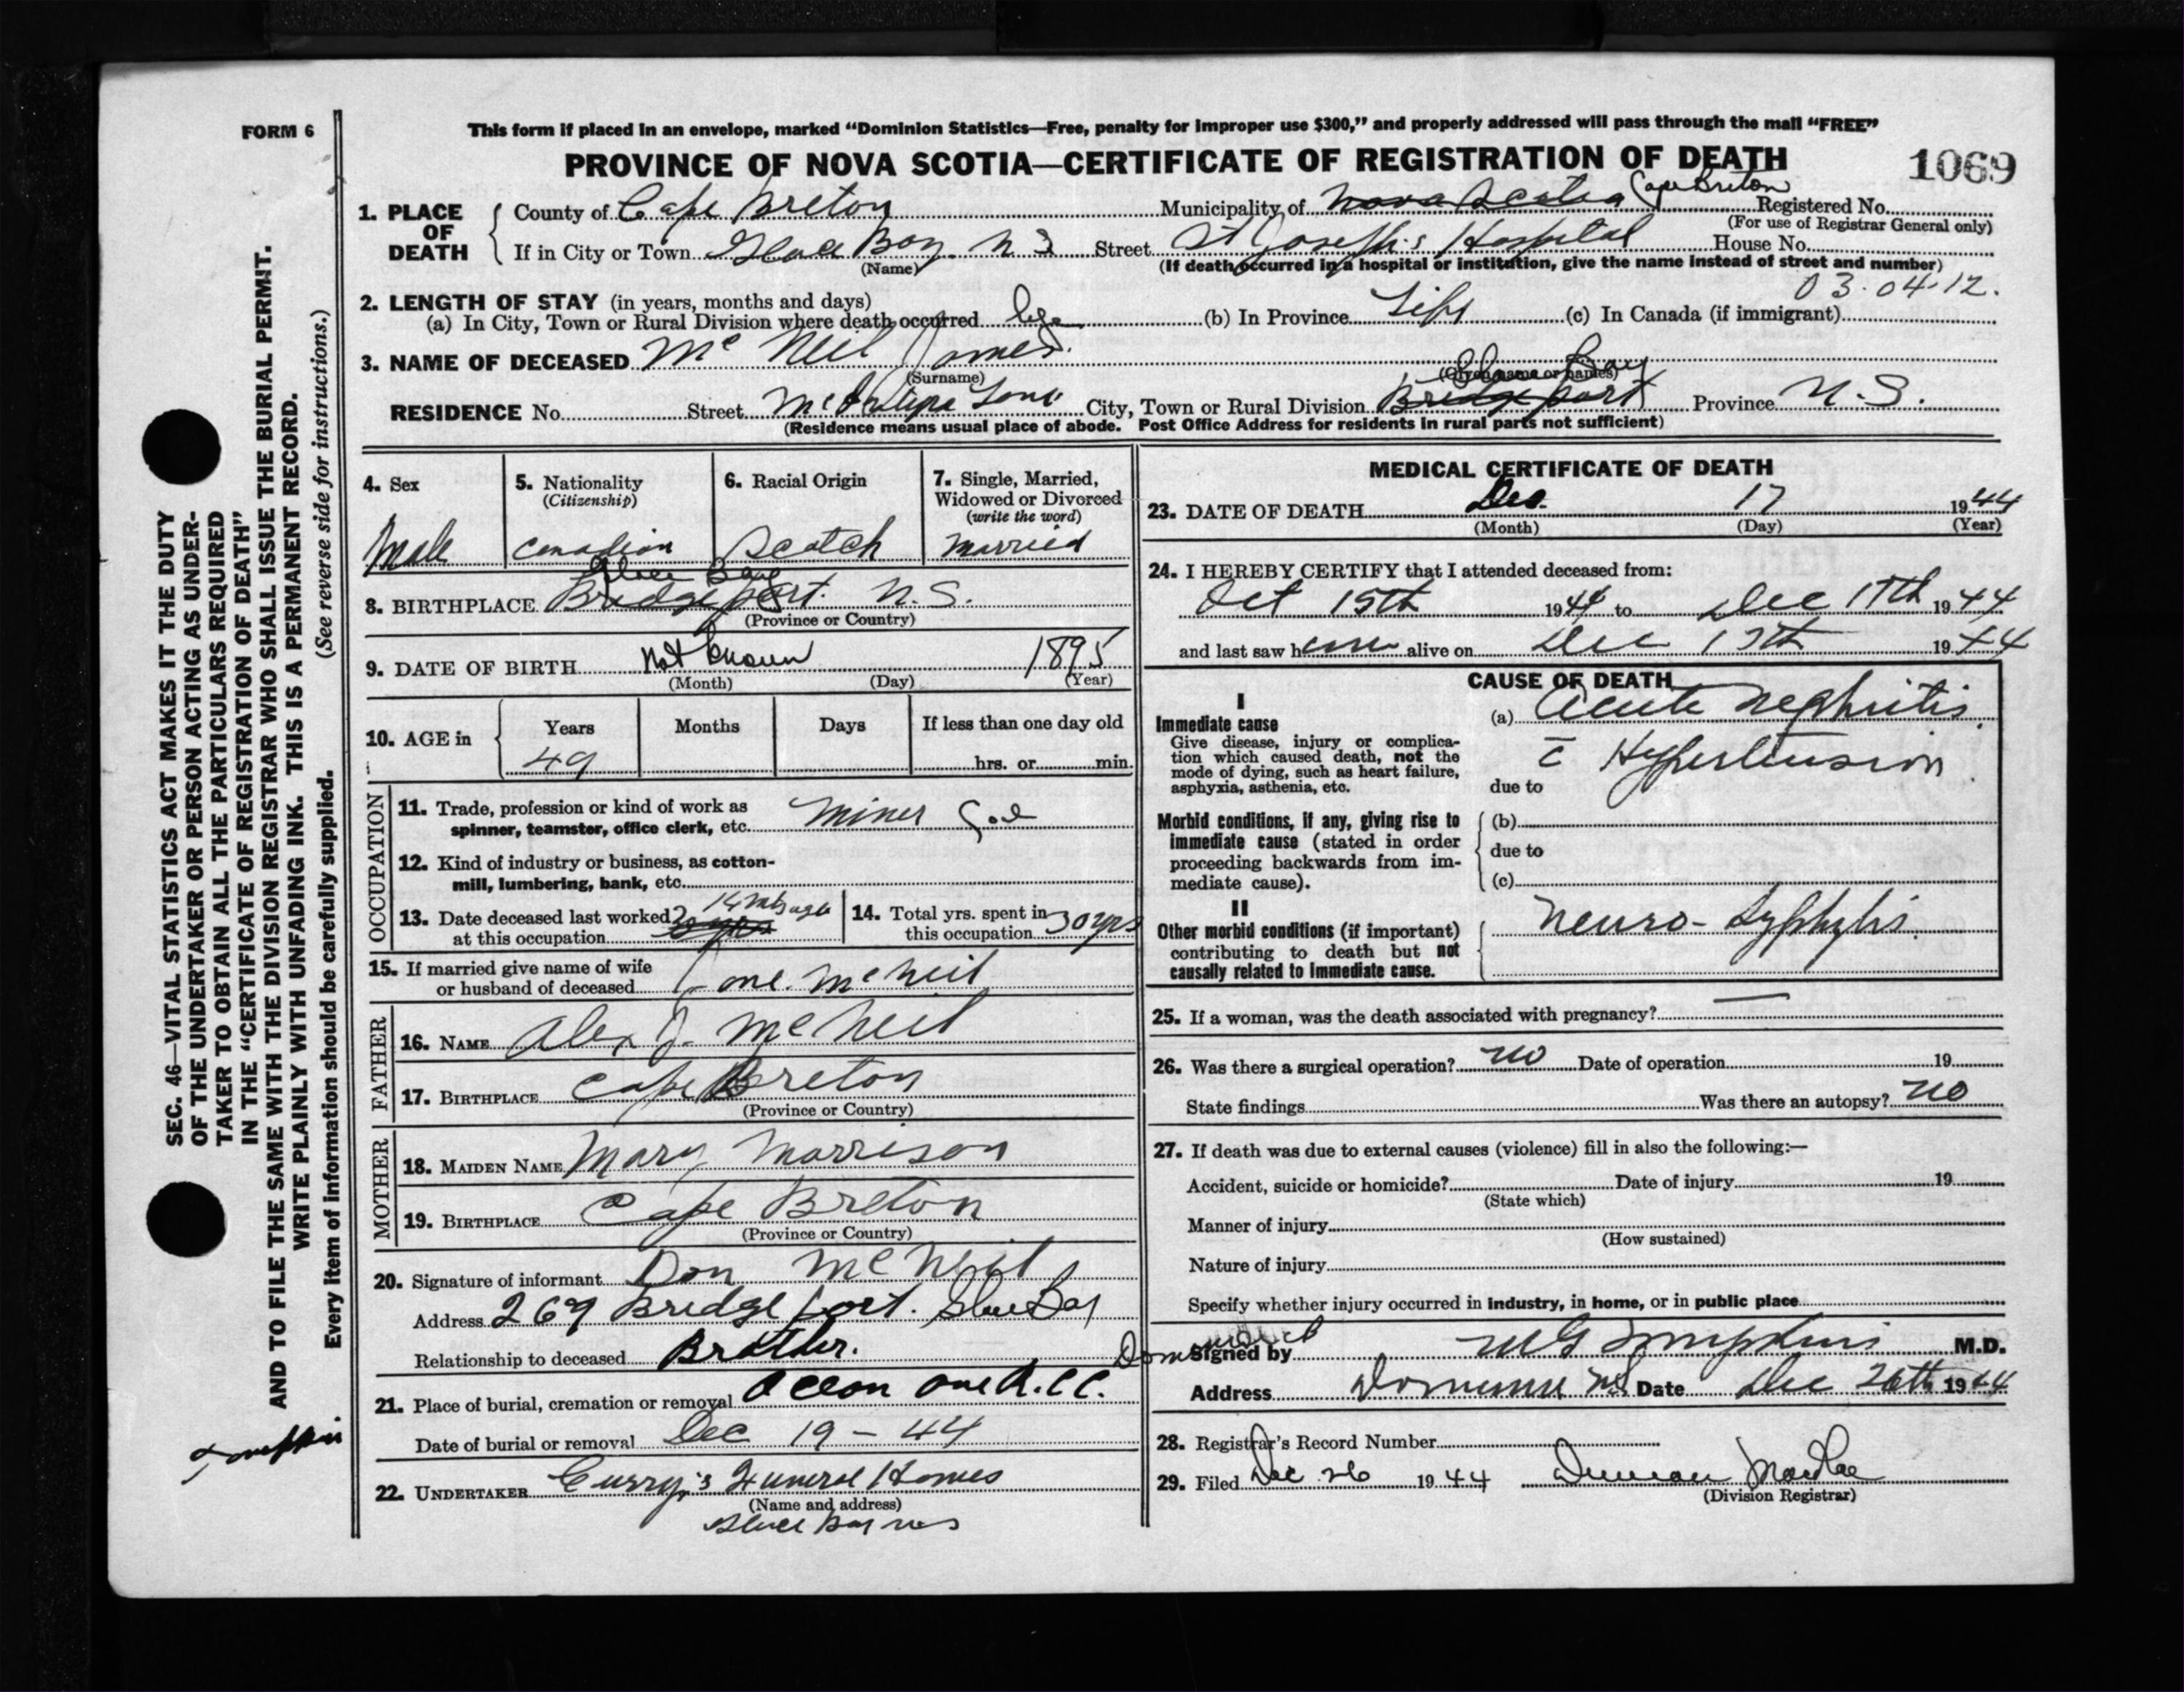 FORM 6
This form if placed in an envelope, marked "Dominion Statistics—Free, penalty for improper use $300," and properly addressed will pass through the mail "FREE"
PROVINCE OF NOVA SCOTIA—CERTIFICATE OF REGISTRATION OF DEATH 1069
1. PLACE OF DEATH
County of Cape Breton Municipality of Nova Scotia Cape Breton Registered No.
(For use of Registrar General only)
If in City or Town Glace Bay. N S Street St Joseph's Hospital House No.
(Name) (If death occurred in a hospital or institution, give the name instead of street and number)
03.04.12.
2. LENGTH OF STAY (in years, months and days)
(a) In City, Town or Rural Division where death occurred life (b) In Province Life (c) In Canada (if immigrant)
3. NAME OF DECEASED McNeil James.
(Surname) (Given name or names)
Glace Bay
RESIDENCE No. Street City, Town or Rural Division Bridgeport Province N.S.
(Residence means usual place of abode. Post Office Address for residents in rural parts not sufficient)
4. Sex
Male
5. Nationality
(Citizenship)
Canadian
6. Racial Origin
Scotch
7. Single, Married,
Widowed or Divorced
(write the word)
Married
Glace Bay
8. BIRTHPLACE Bridgeport. N.S.
(Province or Country)
9. DATE OF BIRTH Not Known 1895
(Month) (Day) (Year)
10. AGE in
Years Months Days If less than one day old
49 hrs. or min.
OCCUPATION
11. Trade, profession or kind of work as
spinner, teamster, office clerk, etc. Miner
12. Kind of industry or business, as cotton-
mill, lumbering, bank, etc.
13. Date deceased last worked
at this occupation
14. Total yrs. spent in
this occupation 30 yrs
15. If married give name of wife
or husband of deceased McNeil
FATHER
16. NAME Alex J. McNeil
17. BIRTHPLACE Cape Breton
(Province or Country)
MOTHER
18. MAIDEN NAME Mary Morrison
19. BIRTHPLACE Cape Breton
(Province or Country)
20. Signature of informant Don McNeil
Address 269 Bridgeport. Glace Bay
Relationship to deceased Brother.
21. Place of burial, cremation or removal
Date of burial or removal Dec 19 - 44
22. UNDERTAKER Curry's Funeral Homes
(Name and address)
Glace Bay NS
MEDICAL CERTIFICATE OF DEATH
23. DATE OF DEATH Dec. 17 1944
(Month) (Day) (Year)
24. I HEREBY CERTIFY that I attended deceased from:
Oct 15th 1944 to Dec 17th 1944
and last saw him alive on Dec 1944
CAUSE OF DEATH
I
Immediate cause
Give disease, injury or complica-
tion which caused death, not the
mode of dying, such as heart failure,
asphyxia, asthenia, etc.
(a) Acute Nephritis
c̄ Hypertension
due to
Morbid conditions, if any, giving rise to
immediate cause (stated in order
proceeding backwards from im-
mediate cause).
(b)
due to
(c)
II
Other morbid conditions (if important)
contributing to death but not
causally related to immediate cause.
Neuro-Syphylis.
25. If a woman, was the death associated with pregnancy? —
26. Was there a surgical operation? no Date of operation 19
State findings Was there an autopsy? no
27. If death was due to external causes (violence) fill in also the following:—
Accident, suicide or homicide? Date of injury 19
(State which)
Manner of injury
(How sustained)
Nature of injury
Specify whether injury occurred in industry, in home, or in public place
Signed by MG Tompkins M.D.
Address Dominion NS Date Dec 26th 1944
28. Registrar's Record Number
29. Filed Dec 26 1944 Duncan
(Division Registrar)
SEC. 46—VITAL STATISTICS ACT MAKES IT THE DUTY
OF THE UNDERTAKER OR PERSON ACTING AS UNDER-
TAKER TO OBTAIN ALL THE PARTICULARS REQUIRED
IN THE "CERTIFICATE OF REGISTRATION OF DEATH"
AND TO FILE THE SAME WITH THE DIVISION REGISTRAR WHO SHALL ISSUE THE BURIAL PERMIT.
WRITE PLAINLY WITH UNFADING INK. THIS IS A PERMANENT RECORD.
Every item of information should be carefully supplied. (See reverse side for instructions.)
Tompkins